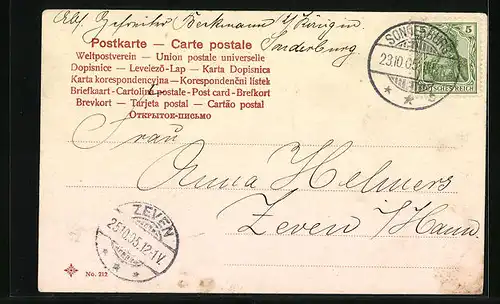 Postkarte — Carte postale
Sonderburg
Weltpostverein — Union postale universelle
Dopisnice — Levelező-Lap — Karta Dopisnica
Karta korespondencyjna — Korespondenční lístek
Briefkaart - Cartolina postale - Post card - Brefkort
Brevkort — Tarjeta postal — Cartão postal
ОТКРЫТОЕ-ПИСЬМО
5
DEUTSCHES REICH
Frau
Anna Helmers
Zeven / Hann.
ZEVEN
25.10.05.12-1V.
No. 212